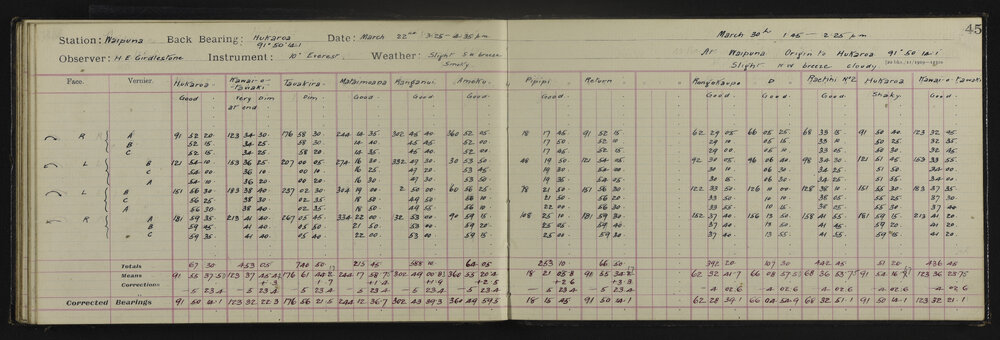 45
Station: Waipuna Back Bearing: Hukaroa 91° 50' 14.1 Date: March 22nd 3.25 - 4.35 pm
Observer: H E Girdlestone Instrument: 10" Everest Weather: Slight S W breeze Smoky
March 30th 1.45 - 2.25 pm
At Waipuna Origin to Hukaroa 91° 50' 14.1
Slight N W breeze cloudy
Face. Vernier. Hukaroa Tauakira Mataimoana Ranganui Ameku Pipipi Return D Hukaroa
Good Very Dim at end Dim Good Good Good Good Good Good Good Good Shaky Good
R A 91 52 20 123 34 30 176 58 30 244 14 35 302 45 40 360 52 05 18 17 45 91 52 15 62 29 05 66 05 25 68 33 15 91 50 40 123 32 45
B 52 15 34 25 58 30 14 40 45 45 52 00 17 50 52 10 29 10 05 15 33 10 50 25 32 35
C 52 15 34 25 58 20 14 35 45 40 52 00 17 45 52 15 29 00 05 10 33 10 50 20 32 45
L B 121 54 10 153 36 25 207 00 05 274 16 30 332 47 30 30 53 50 48 19 50 121 54 05 92 30 05 96 06 40 98 34 30 121 51 45 153 33 55
C 54 00 36 10 00 10 16 25 47 20 53 45 19 30 54 00 30 10 06 30 34 25 51 50 34 00
A 54 10 36 20 00 20 16 30 47 30 53 50 19 35 54 05 30 15 06 30 34 25 51 55 34 00
L B 151 56 30 183 38 40 237 02 30 304 19 00 2 50 00 60 56 25 78 21 50 151 56 30 122 33 50 126 10 00 128 38 10 151 55 30 183 37 35
C 56 25 38 30 02 35 18 50 49 50 56 10 21 50 56 20 33 50 10 15 38 05 55 25 37 30
A 56 30 38 40 02 35 18 50 49 55 56 10 22 00 56 20 33 55 10 05 38 05 55 30 37 40
R A 181 59 35 213 41 40 267 05 45 334 22 00 32 53 00 90 59 15 108 25 10 181 59 30 152 37 40 156 13 50 158 41 55 181 59 15 213 41 20
B 59 45 41 40 05 50 21 50 53 40 59 20 25 00 59 30 37 40 13 50 41 45 59 20 41 20
C 59 35 41 40 05 45 22 00 53 40 59 15 25 05 59 30 37 40 13 55 41 55 59 15 41 20
Totals 67 30 453 05 740 50 215 45 588 10 64 05 253 10 66 50 392 20 107 30 442 45 51 20 436 45
Means 91 55 37.5 123 37 45.4 176 61 44.2 244 17 58.7 302 49 00.8 360 55 20.4 18 21 05.8 91 55 34.2 62 32 41.7 66 08 57.5 68 36 53.7 91 54 16.7 123 36 23.75
Corrections + .3 + .7 + 1.4 + 1.9 + 2.5 + 2.6 + 3.3
- 5 23.4 - 5 23.4 - 5 23.4 - 5 23.4 - 5 23.4 - 5 23.4 - 5 23.4 - 5 23.4 - 4 02.6 - 4 02.6 - 4 02.6 - 4 02.6 - 4 02.6
Corrected Bearings 91 50 14.1 123 32 22.3 176 56 21.5 244 12 36.7 302 43 39.3 360 49 59.5 18 15 45 91 50 14.1 62 28 39.1 66 04 54.9 68 32 51.1 91 50 14.1 123 32 21.1